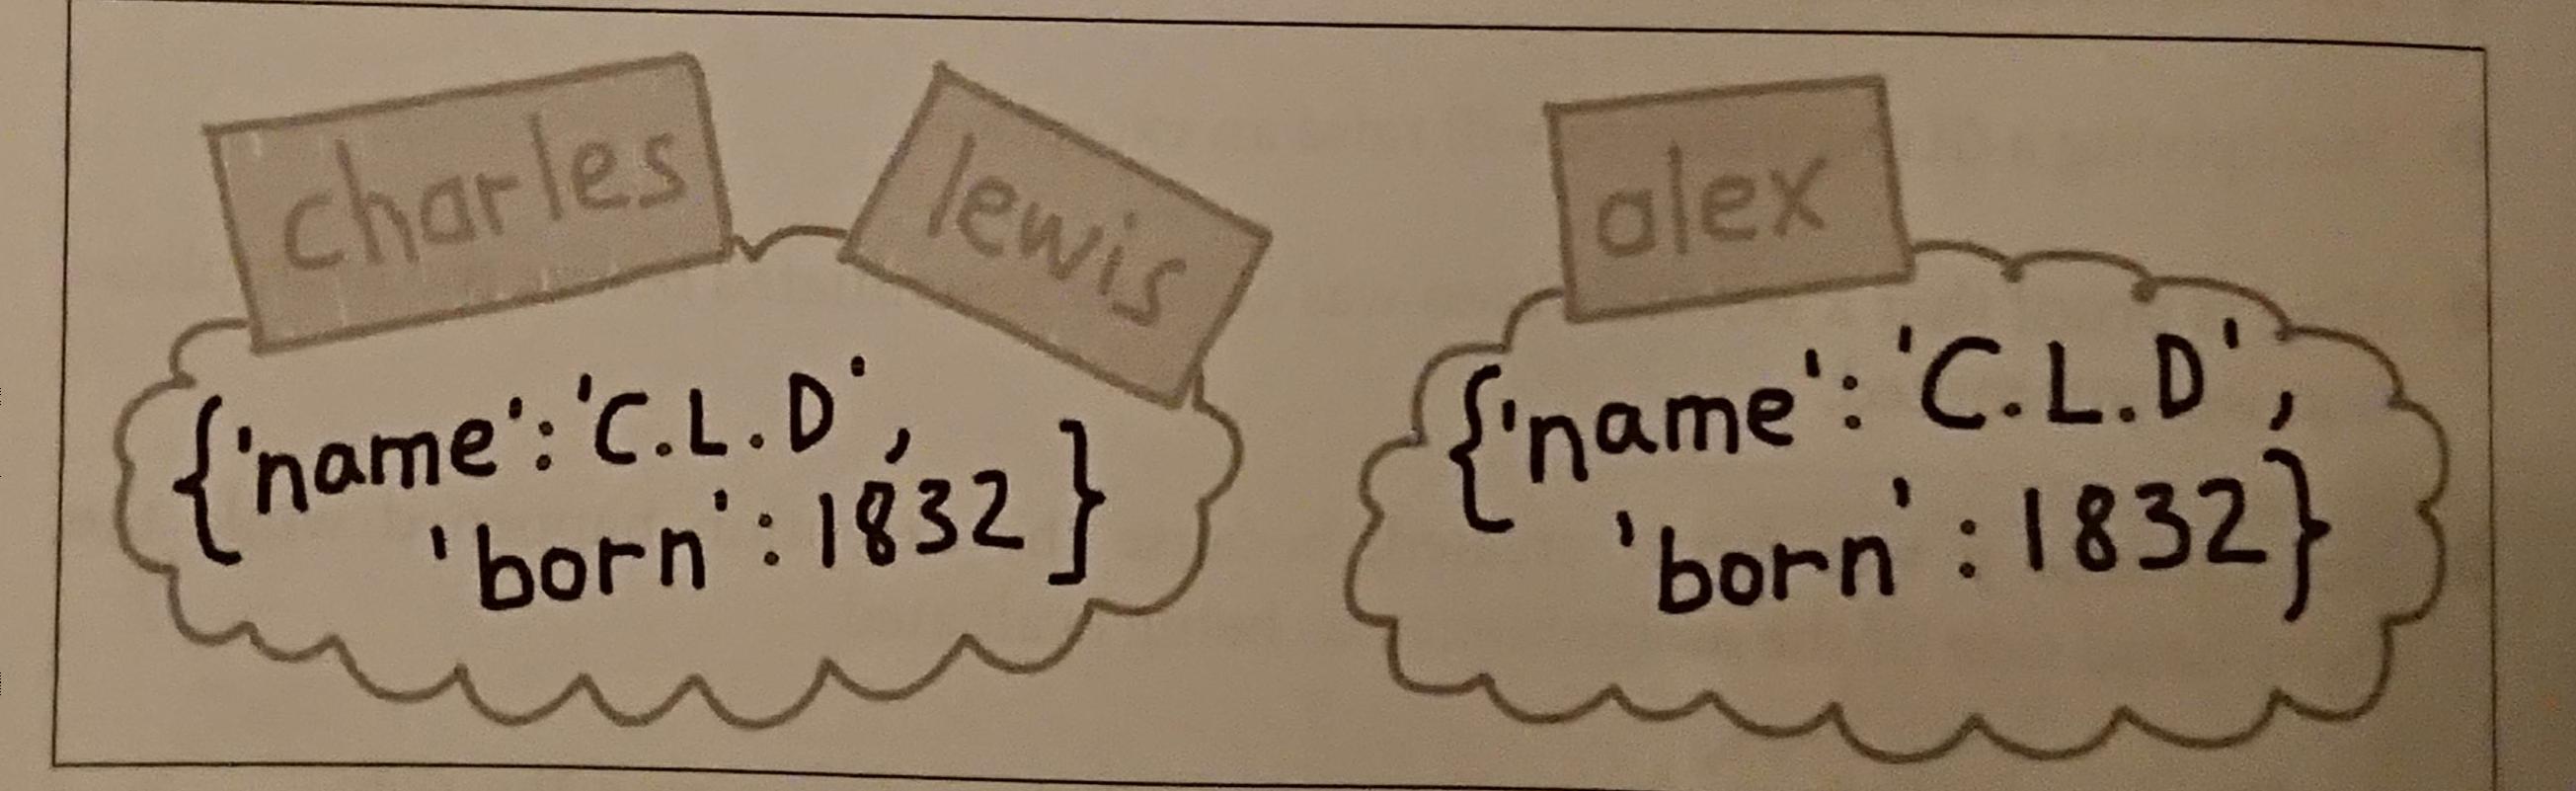 charles
lewis
{'name':'C.L.D',
'born':1832}
alex
{'name':'C.L.D',
'born':1832}